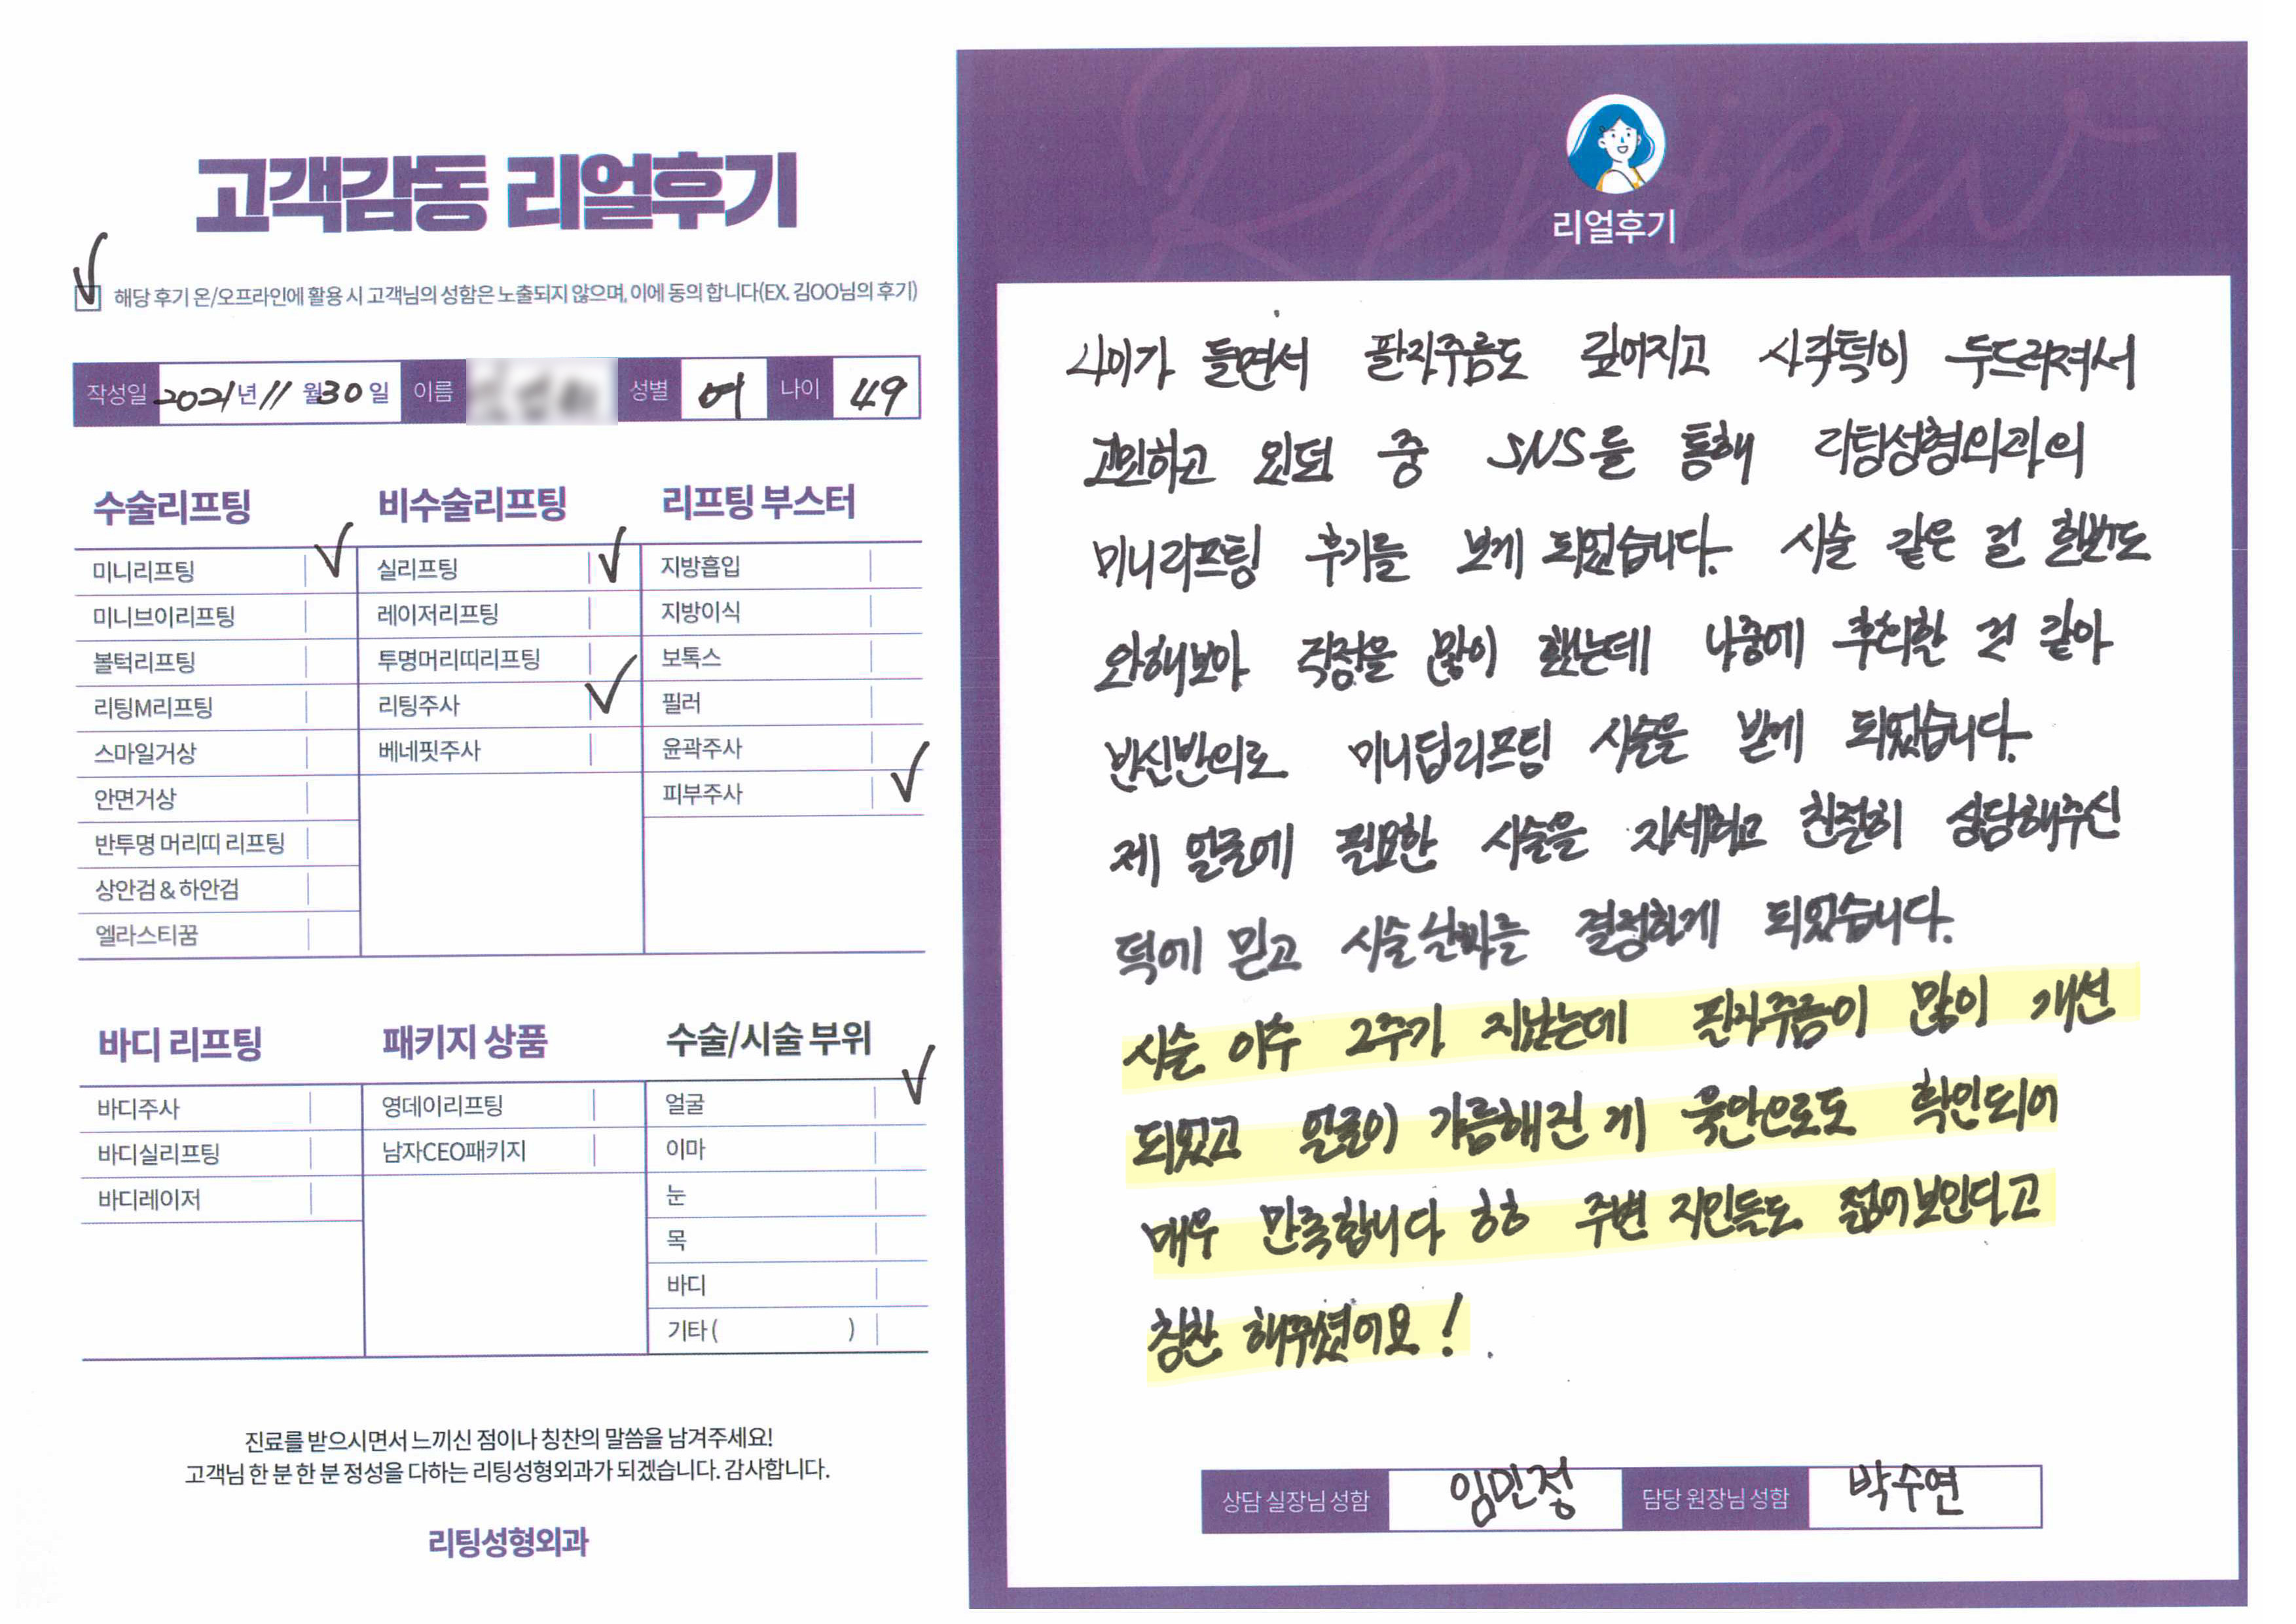 고객감동 리얼후기
해당 후기 온/오프라인에 활용 시 고객님의 성함은 노출되지 않으며, 이에 동의 합니다(EX. 김OO님의 후기)
작성일 2021년 11월 30일 이름 성별 여 나이 49
수술리프팅
미니리프팅
미니브이리프팅
볼턱리프팅
리팅M리프팅
스마일거상
안면거상
반투명 머리띠 리프팅
상안검 & 하안검
엘라스티꿈
비수술리프팅
실리프팅
레이저리프팅
투명머리띠리프팅
리팅주사
베네핏주사
리프팅 부스터
지방흡입
지방이식
보톡스
필러
윤곽주사
피부주사
바디 리프팅
바디주사
바디실리프팅
바디레이저
패키지 상품
영데이리프팅
남자CEO패키지
수술/시술 부위
얼굴
이마
눈
목
바디
기타 ( )
진료를 받으시면서 느끼신 점이나 칭찬의 말씀을 남겨주세요!
고객님 한 분 한 분 정성을 다하는 리팅성형외과가 되겠습니다. 감사합니다.
리팅성형외과
Review
리얼후기
나이가 들면서 팔자주름도 깊어지고 사각턱이 두드러져서
고민하고 있던 중 SNS를 통해 리팅성형외과의
미니리프팅 후기를 보게 되었습니다. 시술 같은 걸 한번도
안해보아 걱정을 많이 했는데 나중에 후회할 것 같아
반신반의로 미니딥리프팅 시술을 받게 되었습니다.
제 얼굴에 필요한 시술을 자세하고 친절히 상담해주신
덕에 믿고 시술날짜를 결정하게 되었습니다.
시술 이후 2주가 지났는데 팔자주름이 많이 개선
되었고 얼굴이 갸름해진 게 육안으로도 확인되어
매우 만족합니다 ㅎㅎ 주변 지인들도 젊어보인다고
칭찬 해주셨어요!
상담 실장님 성함 임민정 담당 원장님 성함 박수연